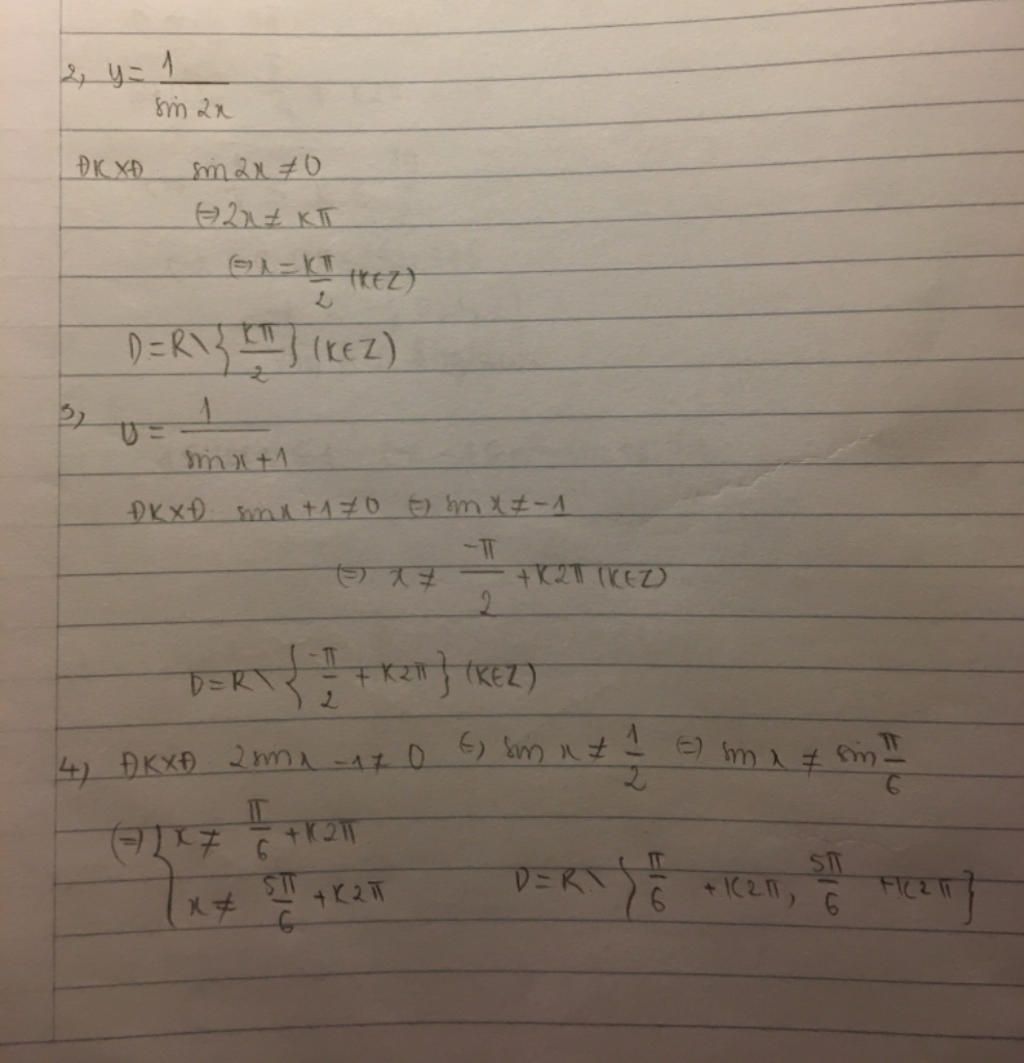 2, y = 1/sin 2x
ĐKXĐ sin 2x ≠ 0
⇔ 2x ≠ Kπ
⇔ x = Kπ/2 (K∈Z)
D = R \ { Kπ/2 } (K∈Z)
3, y = 1/(sin x + 1)
ĐKXĐ sin x + 1 ≠ 0 ⇔ sin x ≠ -1
⇔ x ≠ -π/2 + K2π (K∈Z)
D = R \ { -π/2 + K2π } (K∈Z)
4) ĐKXĐ 2 sin x - 1 ≠ 0 ⇔ sin x ≠ 1/2 ⇔ sin x ≠ sin π/6
⇔ { x ≠ π/6 + K2π
x ≠ 5π/6 + K2π D = R \ { π/6 + K2π, 5π/6 + K2π }